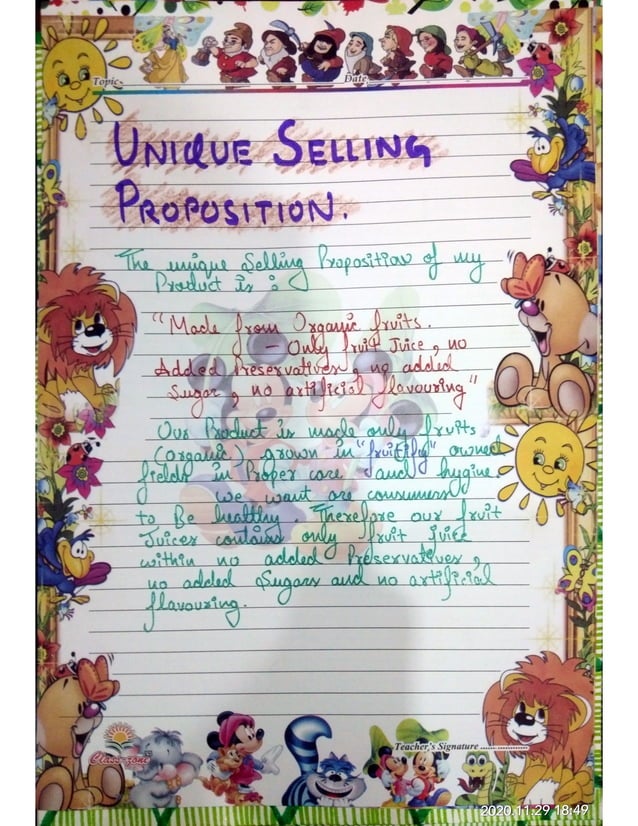 Topic
Date
UNIQUE SELLING
PROPOSITION.
The unique Selling Proposition of my
Product is :
"Made from Organic fruits.
- Only fruit Juice, no
Added Preservatives, no added
Sugar, no artificial flavouring"
Our Product is made only fruits
(organic) grown in "fruitify" owned
fields in Proper care and hygine.
we want are consumers
to Be healthy. Therefore our fruit
Juices contains only fruit juice
within no added Preservatives,
no added Sugars and no artificial
flavouring.
Teacher's Signature
Class-zone
2020.11.29 18:49